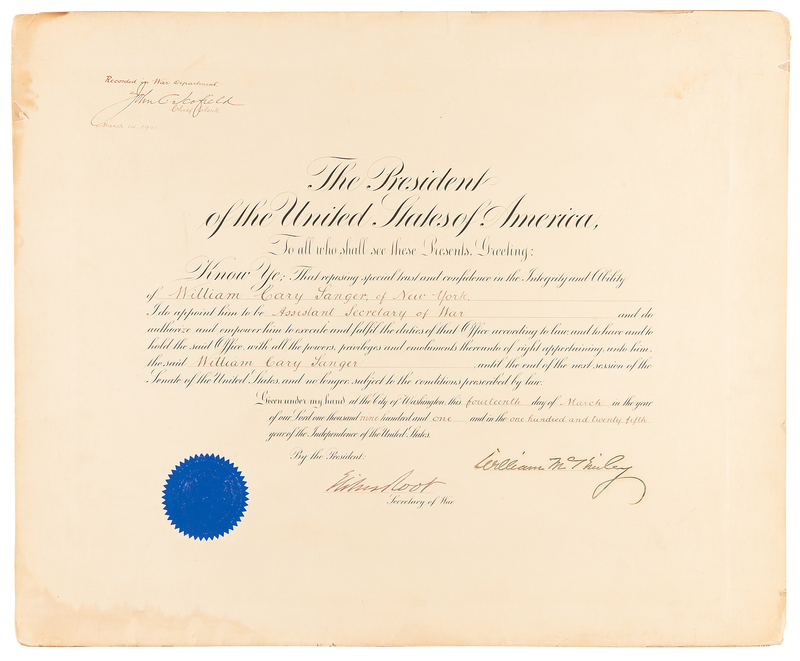 Recorded in War Department.
John C Scofield
Chief Clerk
March 14, 1901
The President
of the United States of America,
To all who shall see these Presents, Greeting:
Know Ye; That reposing special trust and confidence in the Integrity and Ability
of William Cary Sanger, of New York,
I do appoint him to be Assistant Secretary of War and do
authorize and empower him to execute and fulfil the duties of that Office according to law, and to have and to
hold the said Office, with all the powers, privileges and emoluments thereunto of right appertaining, unto him,
the said William Cary Sanger until the end of the next session of the
Senate of the United States, and no longer, subject to the conditions prescribed by law.
Given under my hand at the City of Washington, this fourteenth day of March in the year
of our Lord one thousand nine hundred and one and in the one hundred and twenty fifth
year of the Independence of the United States.
By the President:
William McKinley
Elihu Root
Secretary of War